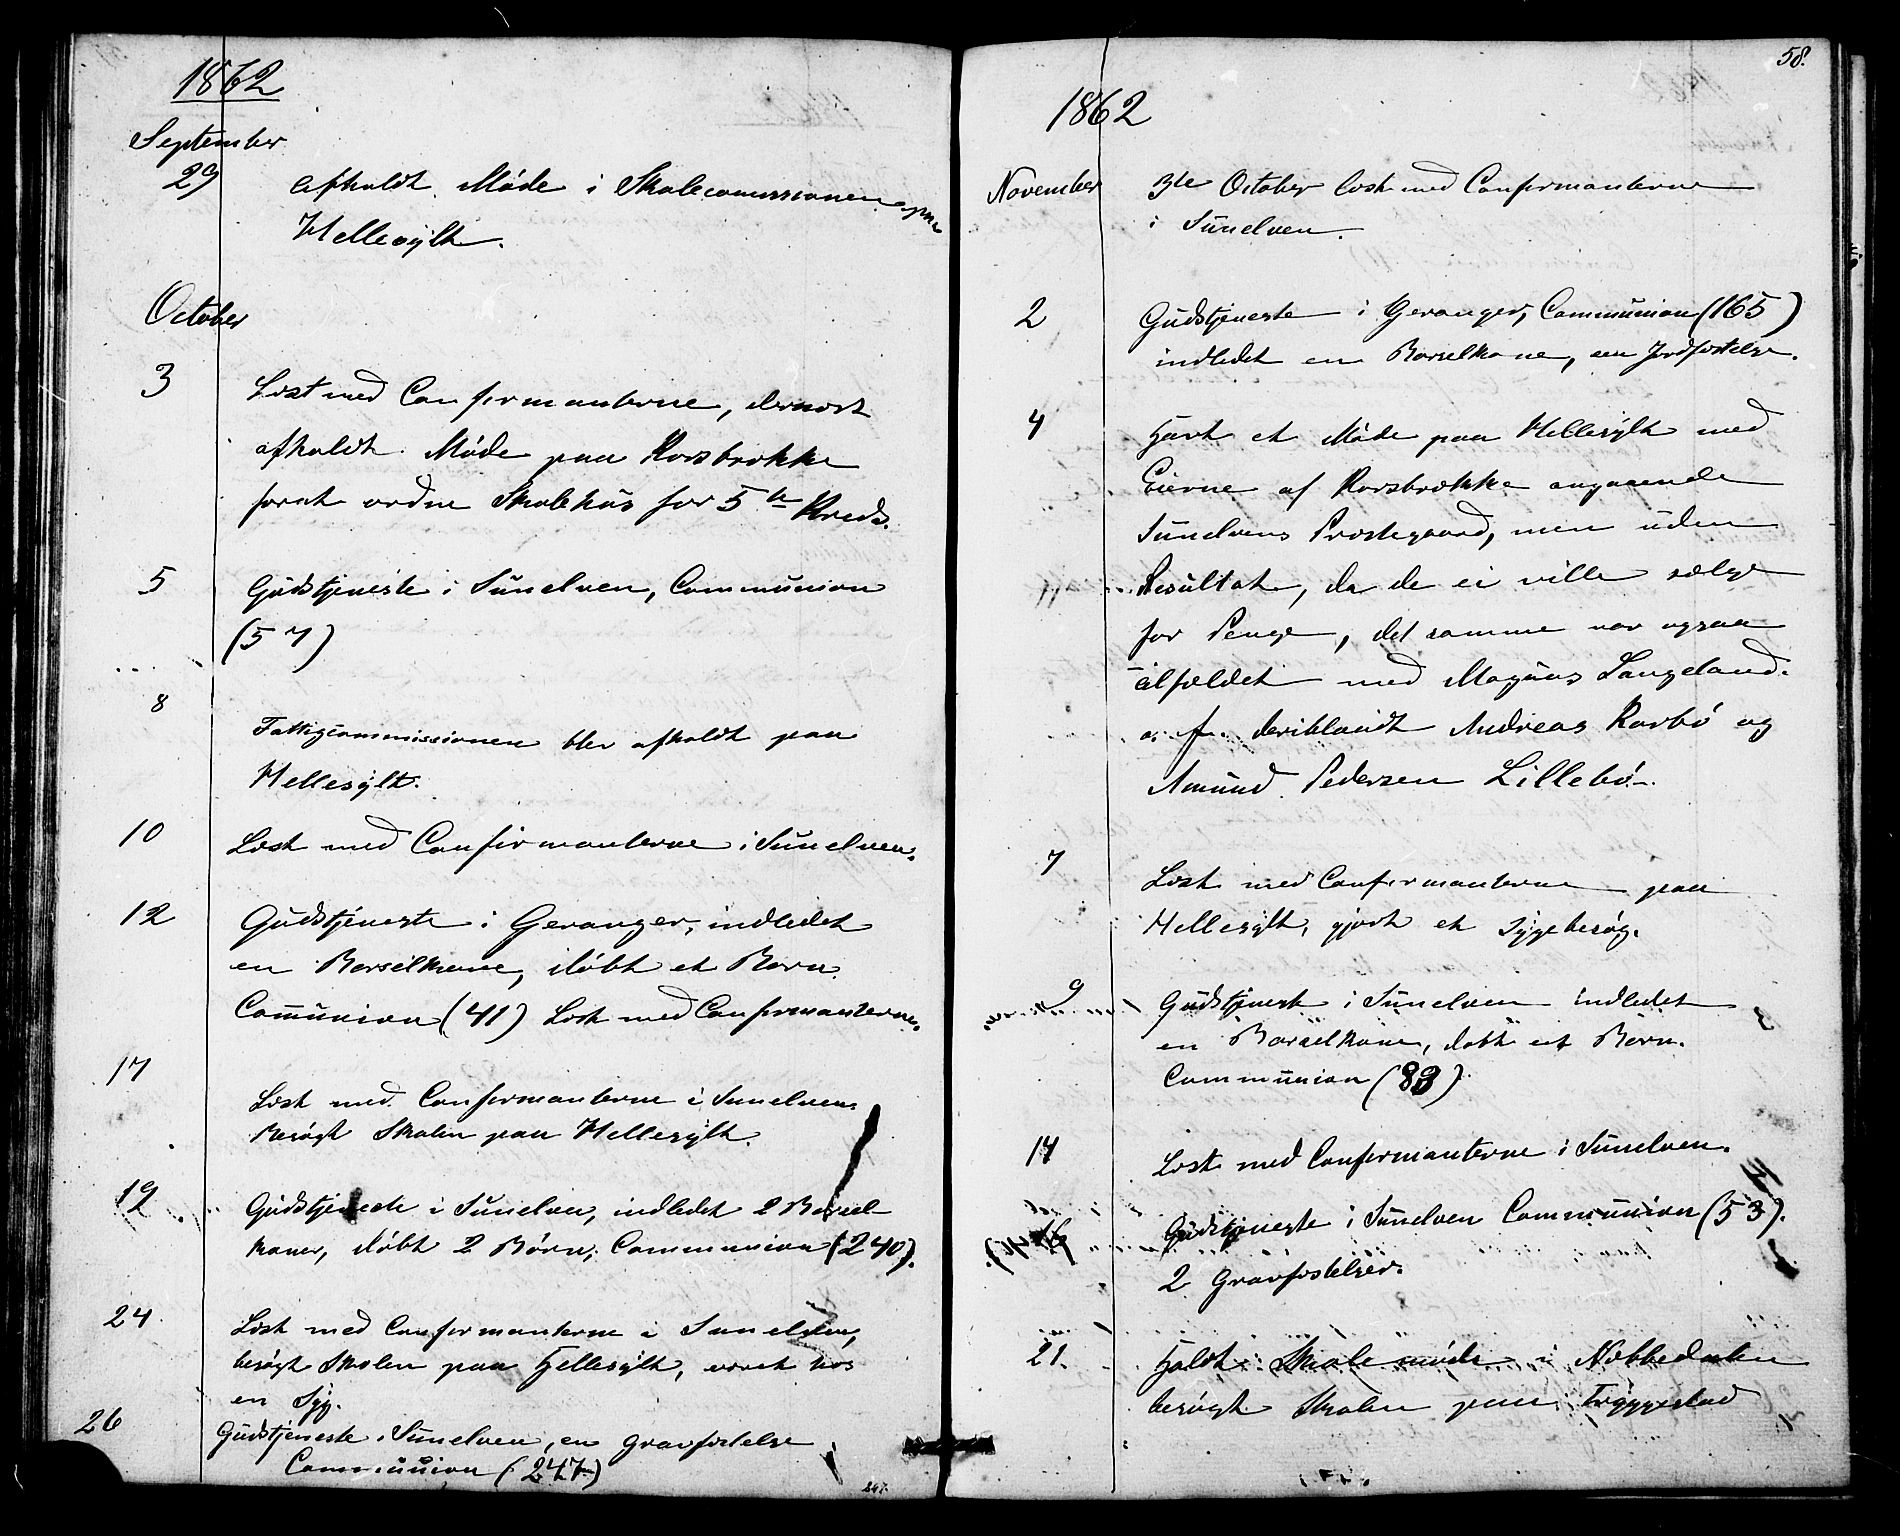 1862
September
29 Afholdt Møde i Skolecommissionen paa
Hellesylt.
October
3 Læst med Confirmanterne, dernæst
afholdt Møde paa Korsbrække
forat ordne Skolehus for 5te Kreds.
5 Gudstjeneste i Sunelven, Communion
(57)
8 Fattigcommissionen blev afholdt paa
Hellesylt.
10 Læst med Confirmanterne i Sunelven.
12 Gudstjeneste i Geranger, indledet
en Barselkone, døbt et Barn.
Communion (41) Læst med Confirmanterne.
17 Læst med Confirmanterne i Sunelven.
Besøgt Skolen paa Hellesylt.
19 Gudstjeneste i Sunelven, indledet 2 Barsel
koner, døbt 2 Børn, Communion (240).
24 Læst med Confirmanterne i Sunelven,
besøgt Skolen paa Hellesylt, været hos
en Syg.
26 Gudstjeneste i Sunelven, en Gravfæstelse
Communion (247)
247.
58.
1862
November 3te October læst med Confirmanterne
i Sunelven.
2 Gudstjeneste i Geranger, Communion (165)
indledet en Barselkone, een Jordfæstelse.
4 Havt et Møde paa Hellesylt med
Eierne af Korsbrække angaaende
Sunelvens Præstegaard, men uden
Resultat, da de ei ville sælge
for Penge, det samme var ogsaa
Tilfældet med Magnus Langeland.
o. f. deriblandt Andreas Karbø og
Amund Pedersen Lillebø.
7 Læst med Confirmanterne paa
Hellesylt, gjort et Sygebesøg.
9 Gudstjenest i Sunelven indledet
en Barselkone, døbt et Barn.
Communion (83)
14 Læst med Confirmanterne i Sunelven.
16 Gudstjeneste i Sunelven Communion (53).
2 Gravfæstelser.
21. Holdt Skolemøde i Nebbedalen
besøgt Skolen paa Tryggestad